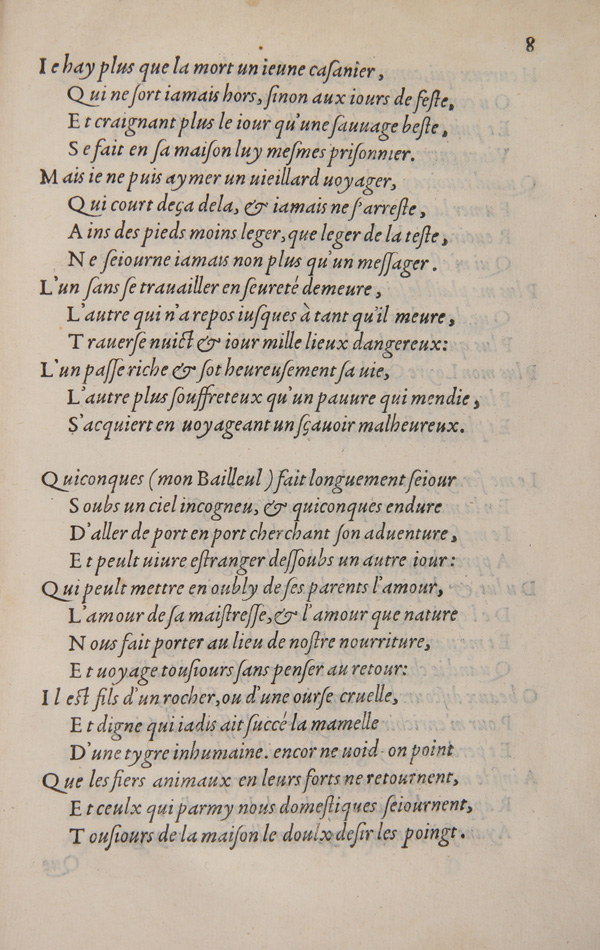 8
Ie hay plus que la mort un ieune caſanier,
Qui ne ſort iamais hors, ſinon aux iours de feſte,
Et craignant plus le iour qu'une ſauuage beſte,
Se fait en ſa maiſon luy meſmes priſonnier.
Mais ie ne puis aymer un uieillard uoyager,
Qui court deça dela, & iamais ne ſ'arreſte,
Ains des pieds moins leger, que leger de la teſte,
Ne ſeiourne iamais non plus qu'un meſſager.
L'un ſans ſe trauailler en ſeureté demeure,
L'autre qui n'a repos iuſques à tant qu'il meure,
Trauerſe nuict & iour mille lieux dangereux:
L'un paſſe riche & ſot heureuſement ſa uie,
L'autre plus ſouffreteux qu'un pauure qui mendie,
S'acquiert en uoyageant un ſçauoir malheureux.
Quiconques (mon Bailleul) fait longuement ſeiour
Soubs un ciel incogneu, & quiconques endure
D'aller de port en port cherchant ſon aduenture,
Et peult uiure eſtranger deſſoubs un autre iour:
Qui peult mettre en oubly de ſes parents l'amour,
L'amour de ſa maiſtreſſe, & l'amour que nature
Nous fait porter au lieu de noſtre nourriture,
Et uoyage touſiours ſans penſer au retour:
Il eſt fils d'un rocher, ou d'une ourſe cruelle,
Et digne qui iadis ait ſuccé la mamelle
D'une tygre inhumaine. encor ne uoid-on point
Que les fiers animaux en leurs forts ne retournent,
Et ceulx qui parmy nous domeſtiques ſeiournent,
Touſiours de la maiſon le doulx deſir les poingt.